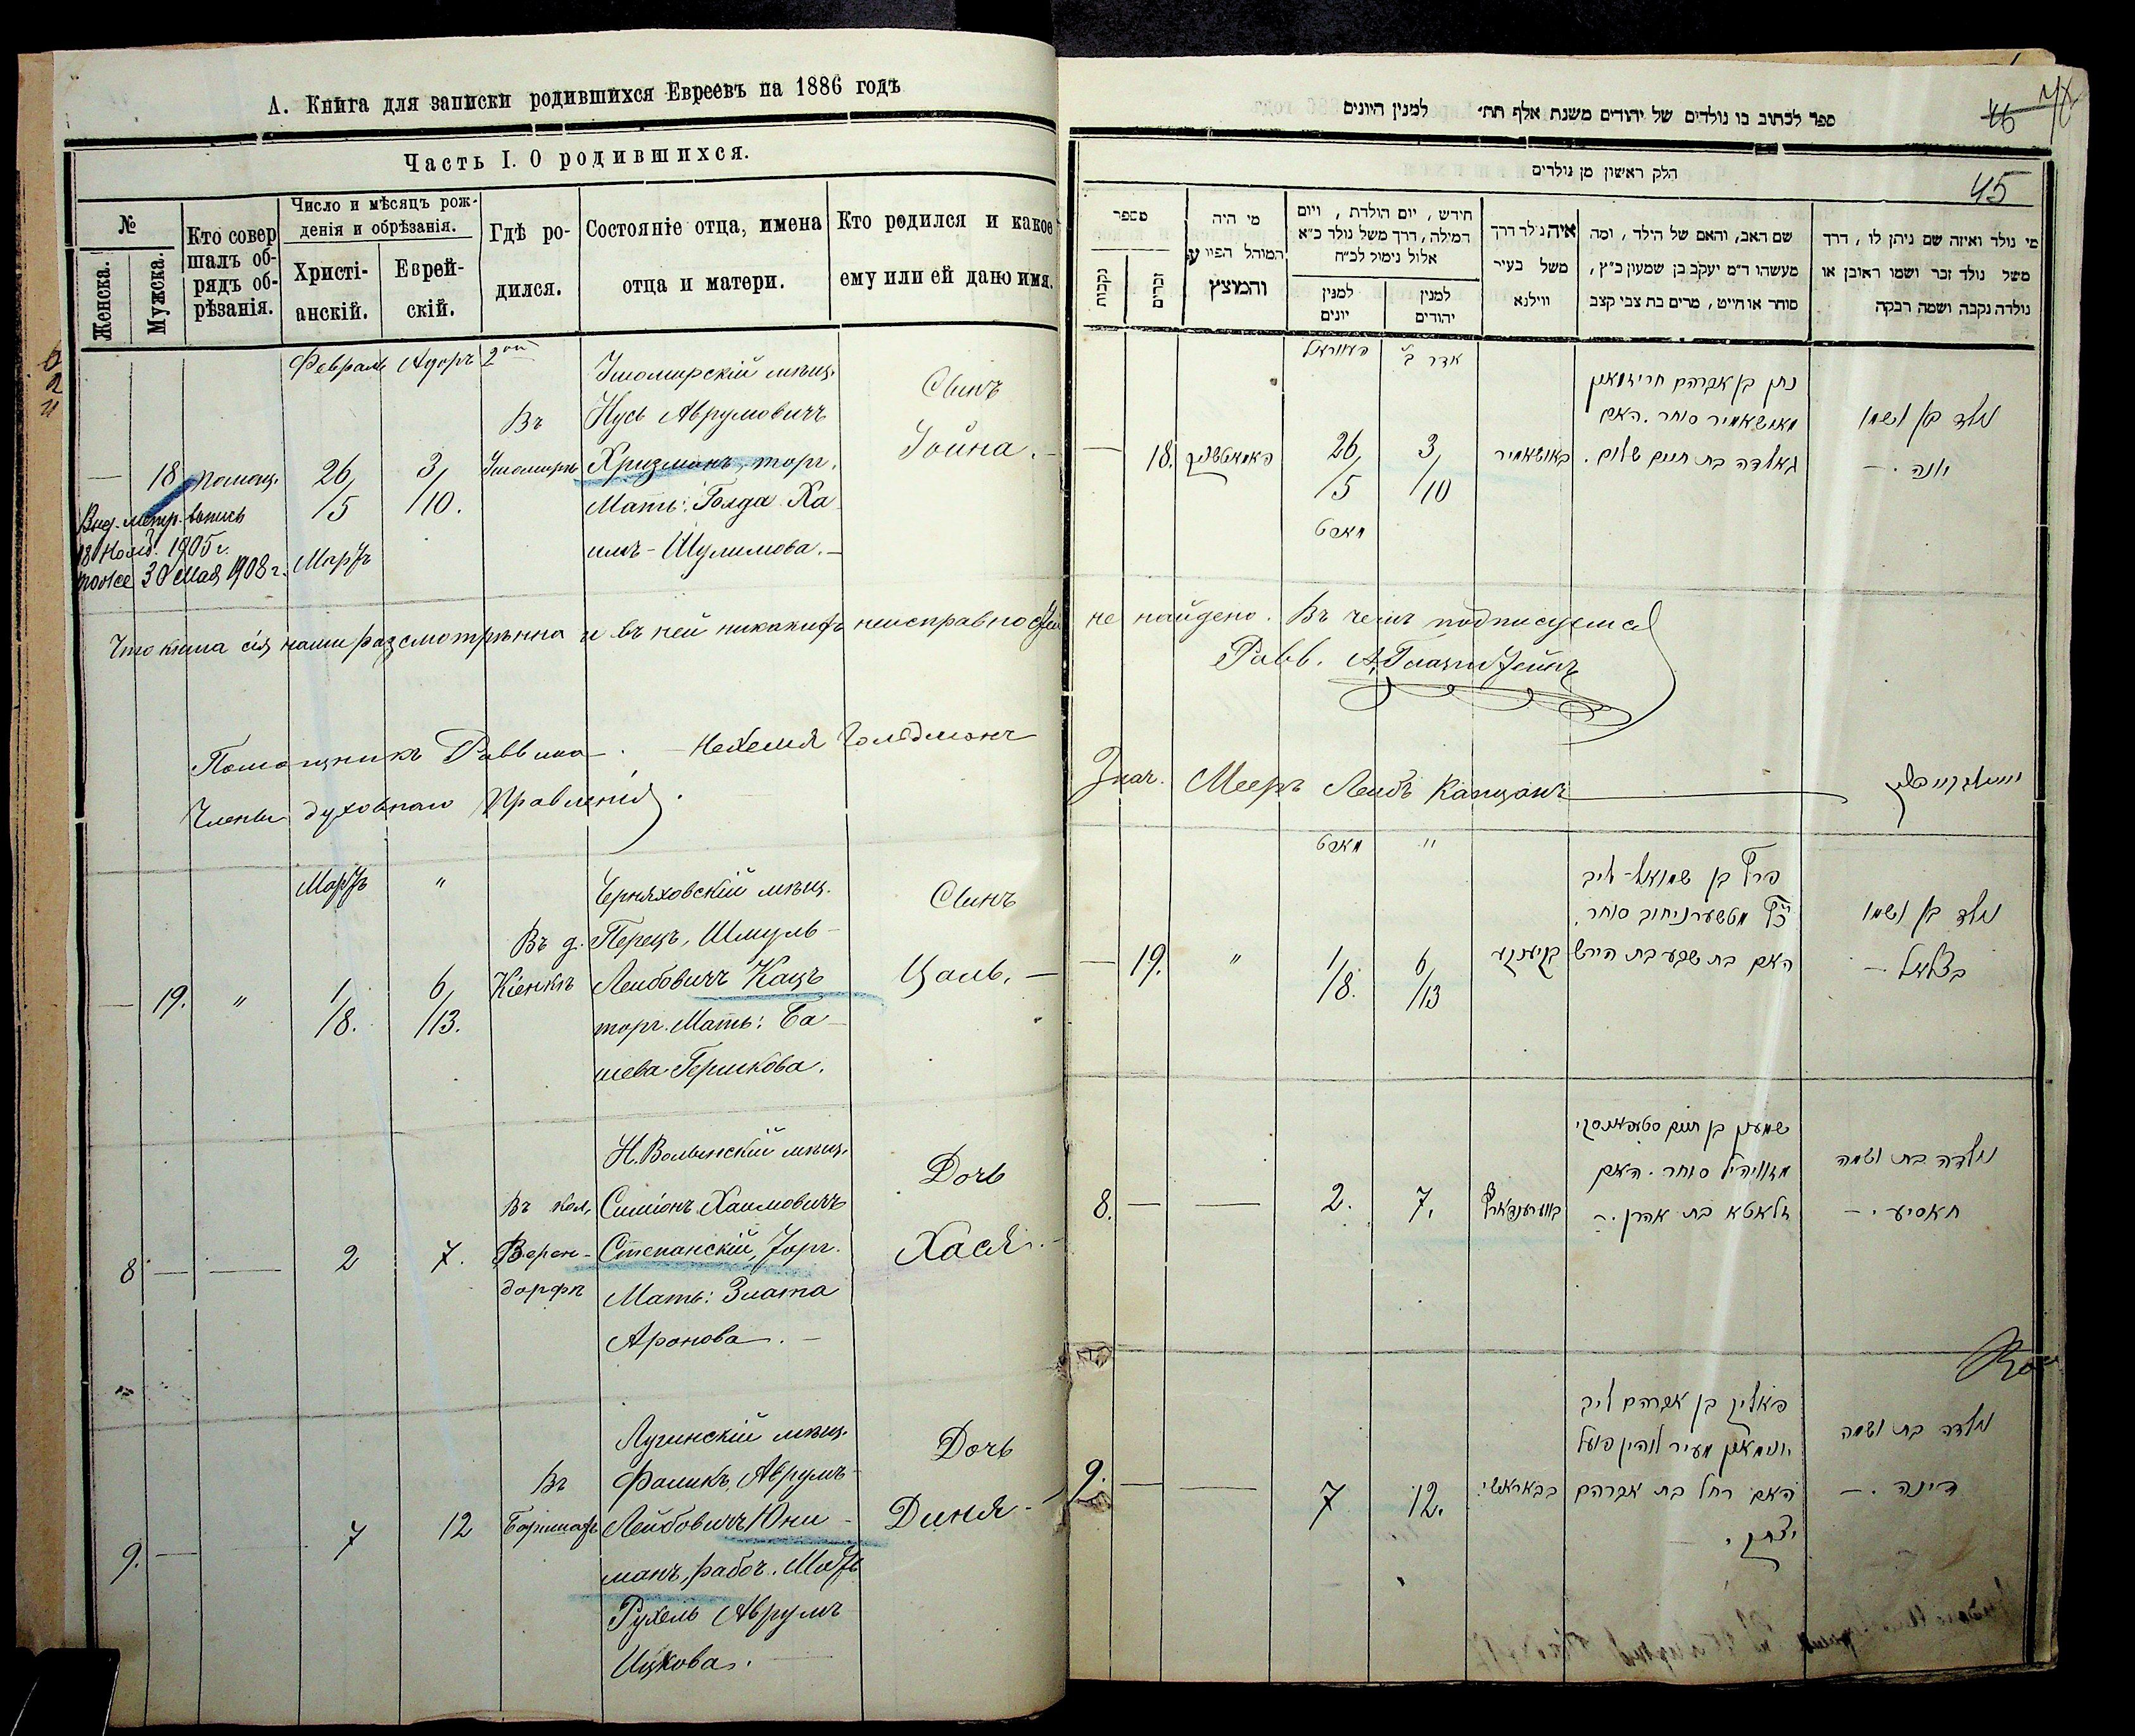 А. Книга для записки родившихся Евреевъ на 1886 годъ
Часть I. О родившихся.
№
Женска.
Мужска.
Кто совер
шалъ об-
рядъ об-
рѣзанія.
Число и мѣсяцъ рож-
денія и обрѣзанія.
Христі-
анскій.
Еврей-
скій.
Гдѣ ро-
дился.
Состояніе отца, имена
отца и матери.
Кто родился и какое
ему или ей дано имя.
Февраль Адоръ 2ой
— 18 помощ.
26/5
3/10.
Мартъ
Въ
Житомирѣ
Житомирскій мѣщ.
Нусь Аврумовичъ
Хризманъ, торг.
Мать: Голда Ха-
имъ-Шулимова. —
Сынъ
Іойна. —
Выд. метр. выпись
18 Нояб. 1905 г.
тоже 30 Мая 1908 г.
Что книга сія нами разсмотрѣнна и въ ней никакихъ неисправностей не найдено. Въ чемъ подписуемся
Равв. А. Гладштейнъ
Помощникъ Раввина. — Нехемя Гольдманъ
Члены духовнаго Правленія.
Знач. Мееръ Лейбъ Капцанъ
Мартъ "
— 19. "
1/8.
6/13.
Въ д.
Кіенкѣ
Черняховскій мѣщ.
Перецъ, Шмуль-
Лейбовичъ Кацъ
торг. Мать: Ба-
шева Гершкова.
Сынъ
Цаль. —
8 — — 2 7.
Въ кол.
Верен-
дорфѣ
Н. Волынскій мѣщ.
Симіонъ Хаимовичъ
Степанскій, Торг.
Мать: Злата
Аронова. —
Дочь
Хася. —
9. — — 7 12
Въ
Лугинскій мѣщ.
Фаликъ, Аврумъ-
Лейбовичъ Юни-
манъ, рабоч. Мать
Рухель Аврумъ
Ицкова.
Дочь
Диня —
ספר לכתוב בו נולדים של יהודים משנת אלף תת׳ למנין היונים
46
45
חלק ראשון מן נולדים
מספר
נקבות
זכרים
מי היה
המוהל הפורע
והמוצץ
חידש, יום הולדת, ויום
המילה, דרך משל נולד כ״א
אלול נימול לכ״ח
למנין
יונים
למנין
יהודים
איה נולד דרך
משל בעיר
ווילנא
שם האב, והאם של הילד, ומה
מעשהו ד״מ יעקב בן שמעון כ״ץ,
סוחר או חייט, מרים בת צבי קצב
מי נולד ואיזה שם ניתן לו, דרך
משל נולד זכר ושמו ראובן או
נולדה נקבה ושמה רבקה
אדר ב׳
— 18.
26/5
3/10
מארט
נתן בן אברהם חריזמאן
סוחר. האם
גאלדה בת חיים שלום.
נולד בן ושמו
יונה. —
מארט "
— 19. "
1/8.
6/13
פרץ בן שמואל-ליב
כ״ץ מטשערניחוב סוחר.
האם בת שבע בת הירש
נולד בן ושמו
בצלאל —
8. — — 2. 7.
שמעון בן חיים סטעפאנסקי
סוחר. האם
זלאטא בת אהרן. —
נולדה בת ושמה
חאסיע. —
9. — — 7 12.
פאליק בן אברהם ליב
יונימאן מעיר לוהין פועל
האם רחל בת אברהם
יצחק.
נולדה בת ושמה
דינה. —